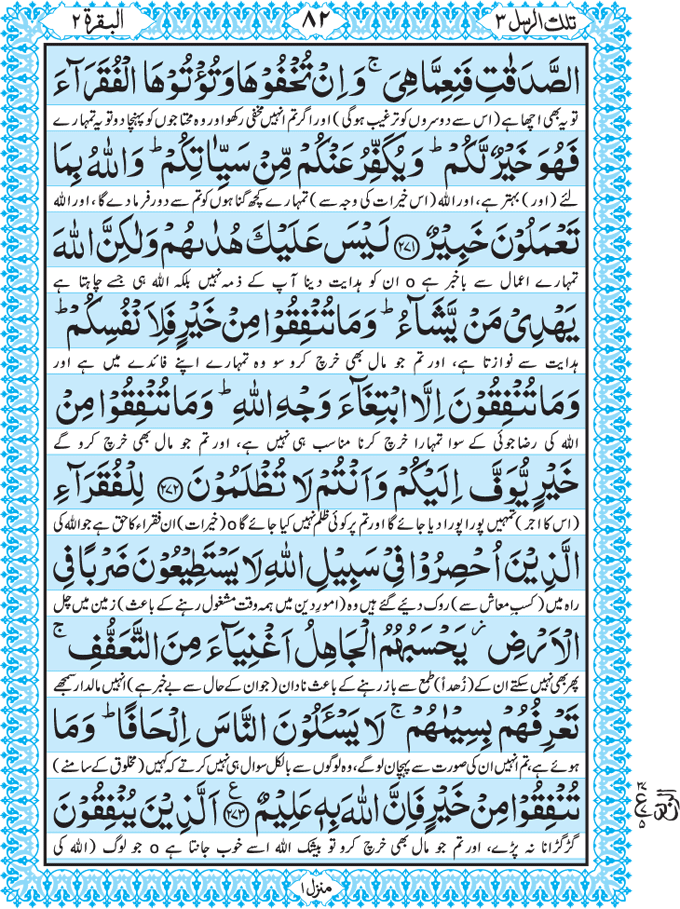 تلك الرسل ٣
٨٢
البقرة ٢
الصَّدَقٰتِ فَنِعِمَّا هِیَ ۚ وَ اِنْ تُخْفُوْهَا وَ تُؤْتُوْهَا الْفُقَرَآءَ
تو یہ بھی اچھا ہے (اس سے دوسروں کو ترغیب ہوگی) اور اگر تم انہیں مخفی رکھو اور وہ محتاجوں کو پہنچا دو تو یہ تمہارے
فَهُوَ خَیْرٌ لَّكُمْ ؕ وَ یُكَفِّرُ عَنْكُمْ مِّنْ سَیِّاٰتِكُمْ ؕ وَ اللّٰهُ بِمَا
لئے (اور) بہتر ہے، اور اللہ (اس خیرات کی وجہ سے) تمہارے کچھ گناہوں کو تم سے دور فرما دے گا، اور اللہ
تَعْمَلُوْنَ خَبِیْرٌ ﴿۲۷۱﴾ لَیْسَ عَلَیْكَ هُدٰىهُمْ وَ لٰكِنَّ اللّٰهَ
تمہارے اعمال سے باخبر ہے o ان کو ہدایت دینا آپ کے ذمہ نہیں بلکہ اللہ ہی جسے چاہتا ہے
یَهْدِیْ مَنْ یَّشَآءُ ؕ وَ مَا تُنْفِقُوْا مِنْ خَیْرٍ فَلِاَنْفُسِكُمْ ؕ
ہدایت سے نوازتا ہے، اور تم جو مال بھی خرچ کرو سو وہ تمہارے اپنے فائدے میں ہے اور
وَ مَا تُنْفِقُوْنَ اِلَّا ابْتِغَآءَ وَجْهِ اللّٰهِ ؕ وَ مَا تُنْفِقُوْا مِنْ
اللہ کی رضاجوئی کے سوا تمہارا خرچ کرنا مناسب ہی نہیں ہے، اور تم جو مال بھی خرچ کرو گے
خَیْرٍ یُّوَفَّ اِلَیْكُمْ وَ اَنْتُمْ لَا تُظْلَمُوْنَ ﴿۲۷۲﴾ لِلْفُقَرَآءِ
(اس کا اجر) تمہیں پورا پورا دیا جائے گا اور تم پر کوئی ظلم نہیں کیا جائے گا o (خیرات) ان فقراء کا حق ہے جو اللہ کی
الَّذِیْنَ اُحْصِرُوْا فِیْ سَبِیْلِ اللّٰهِ لَا یَسْتَطِیْعُوْنَ ضَرْبًا فِی
راہ میں (کسبِ معاش سے) روک دیئے گئے ہیں وہ (امورِ دین میں ہمہ وقت مشغول رہنے کے باعث) زمین میں چل
الْاَرْضِ ؗ یَحْسَبُهُمُ الْجَاهِلُ اَغْنِیَآءَ مِنَ التَّعَفُّفِ ۚ
پھر بھی نہیں سکتے ان کے (زُھداً) طمع سے باز رہنے کے باعث نادان (جو ان کے حال سے بے خبر ہے) انہیں مالدار سمجھے
تَعْرِفُهُمْ بِسِیْمٰىهُمْ ۚ لَا یَسْـَٔلُوْنَ النَّاسَ اِلْحَافًا ؕ وَ مَا
ہوئے ہے، تم انہیں ان کی صورت سے پہچان لو گے، وہ لوگوں سے بالکل سوال ہی نہیں کرتے کہ کہیں (مخلوق کے سامنے)
تُنْفِقُوْا مِنْ خَیْرٍ فَاِنَّ اللّٰهَ بِهٖ عَلِیْمٌ ﴿۲۷۳﴾ ع اَلَّذِیْنَ یُنْفِقُوْنَ
گڑگڑانا نہ پڑے، اور تم جو مال بھی خرچ کرو تو بیشک اللہ اسے خوب جانتا ہے o جو لوگ (اللہ کی
منزل ۱